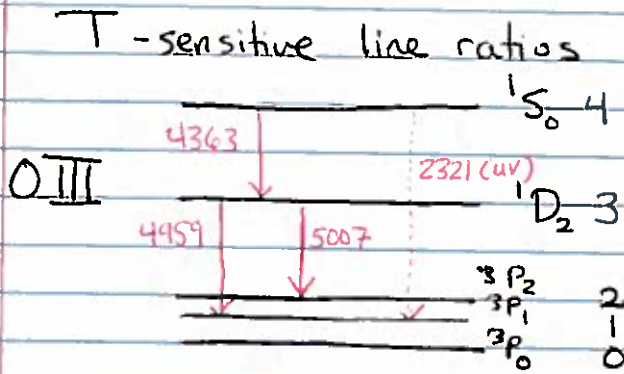 T-sensitive line ratios
¹S₀ 4
4363
2321 (uv)
O III
¹D₂ 3
4959 5007
³P₂ 2
³P₁ 1
³P₀ 0